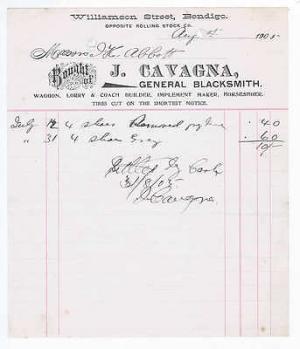 Williamson Street, Bendigo.
OPPOSITE ROLLING STOCK CO.
Aug 4 1905
Messrs Abbott
Bought of
J. CAVAGNA,
GENERAL BLACKSMITH.
WAGGON, LORRY & COACH BUILDER, IMPLEMENT MAKER, HORSESHOER.
TIRES CUT ON THE SHORTEST NOTICE.
July 12 4 shoes Removed . 4 0
" 31 4 shoes Grey . 6 0
10/-
Settled by Cash
31/8/05
J Cavagna